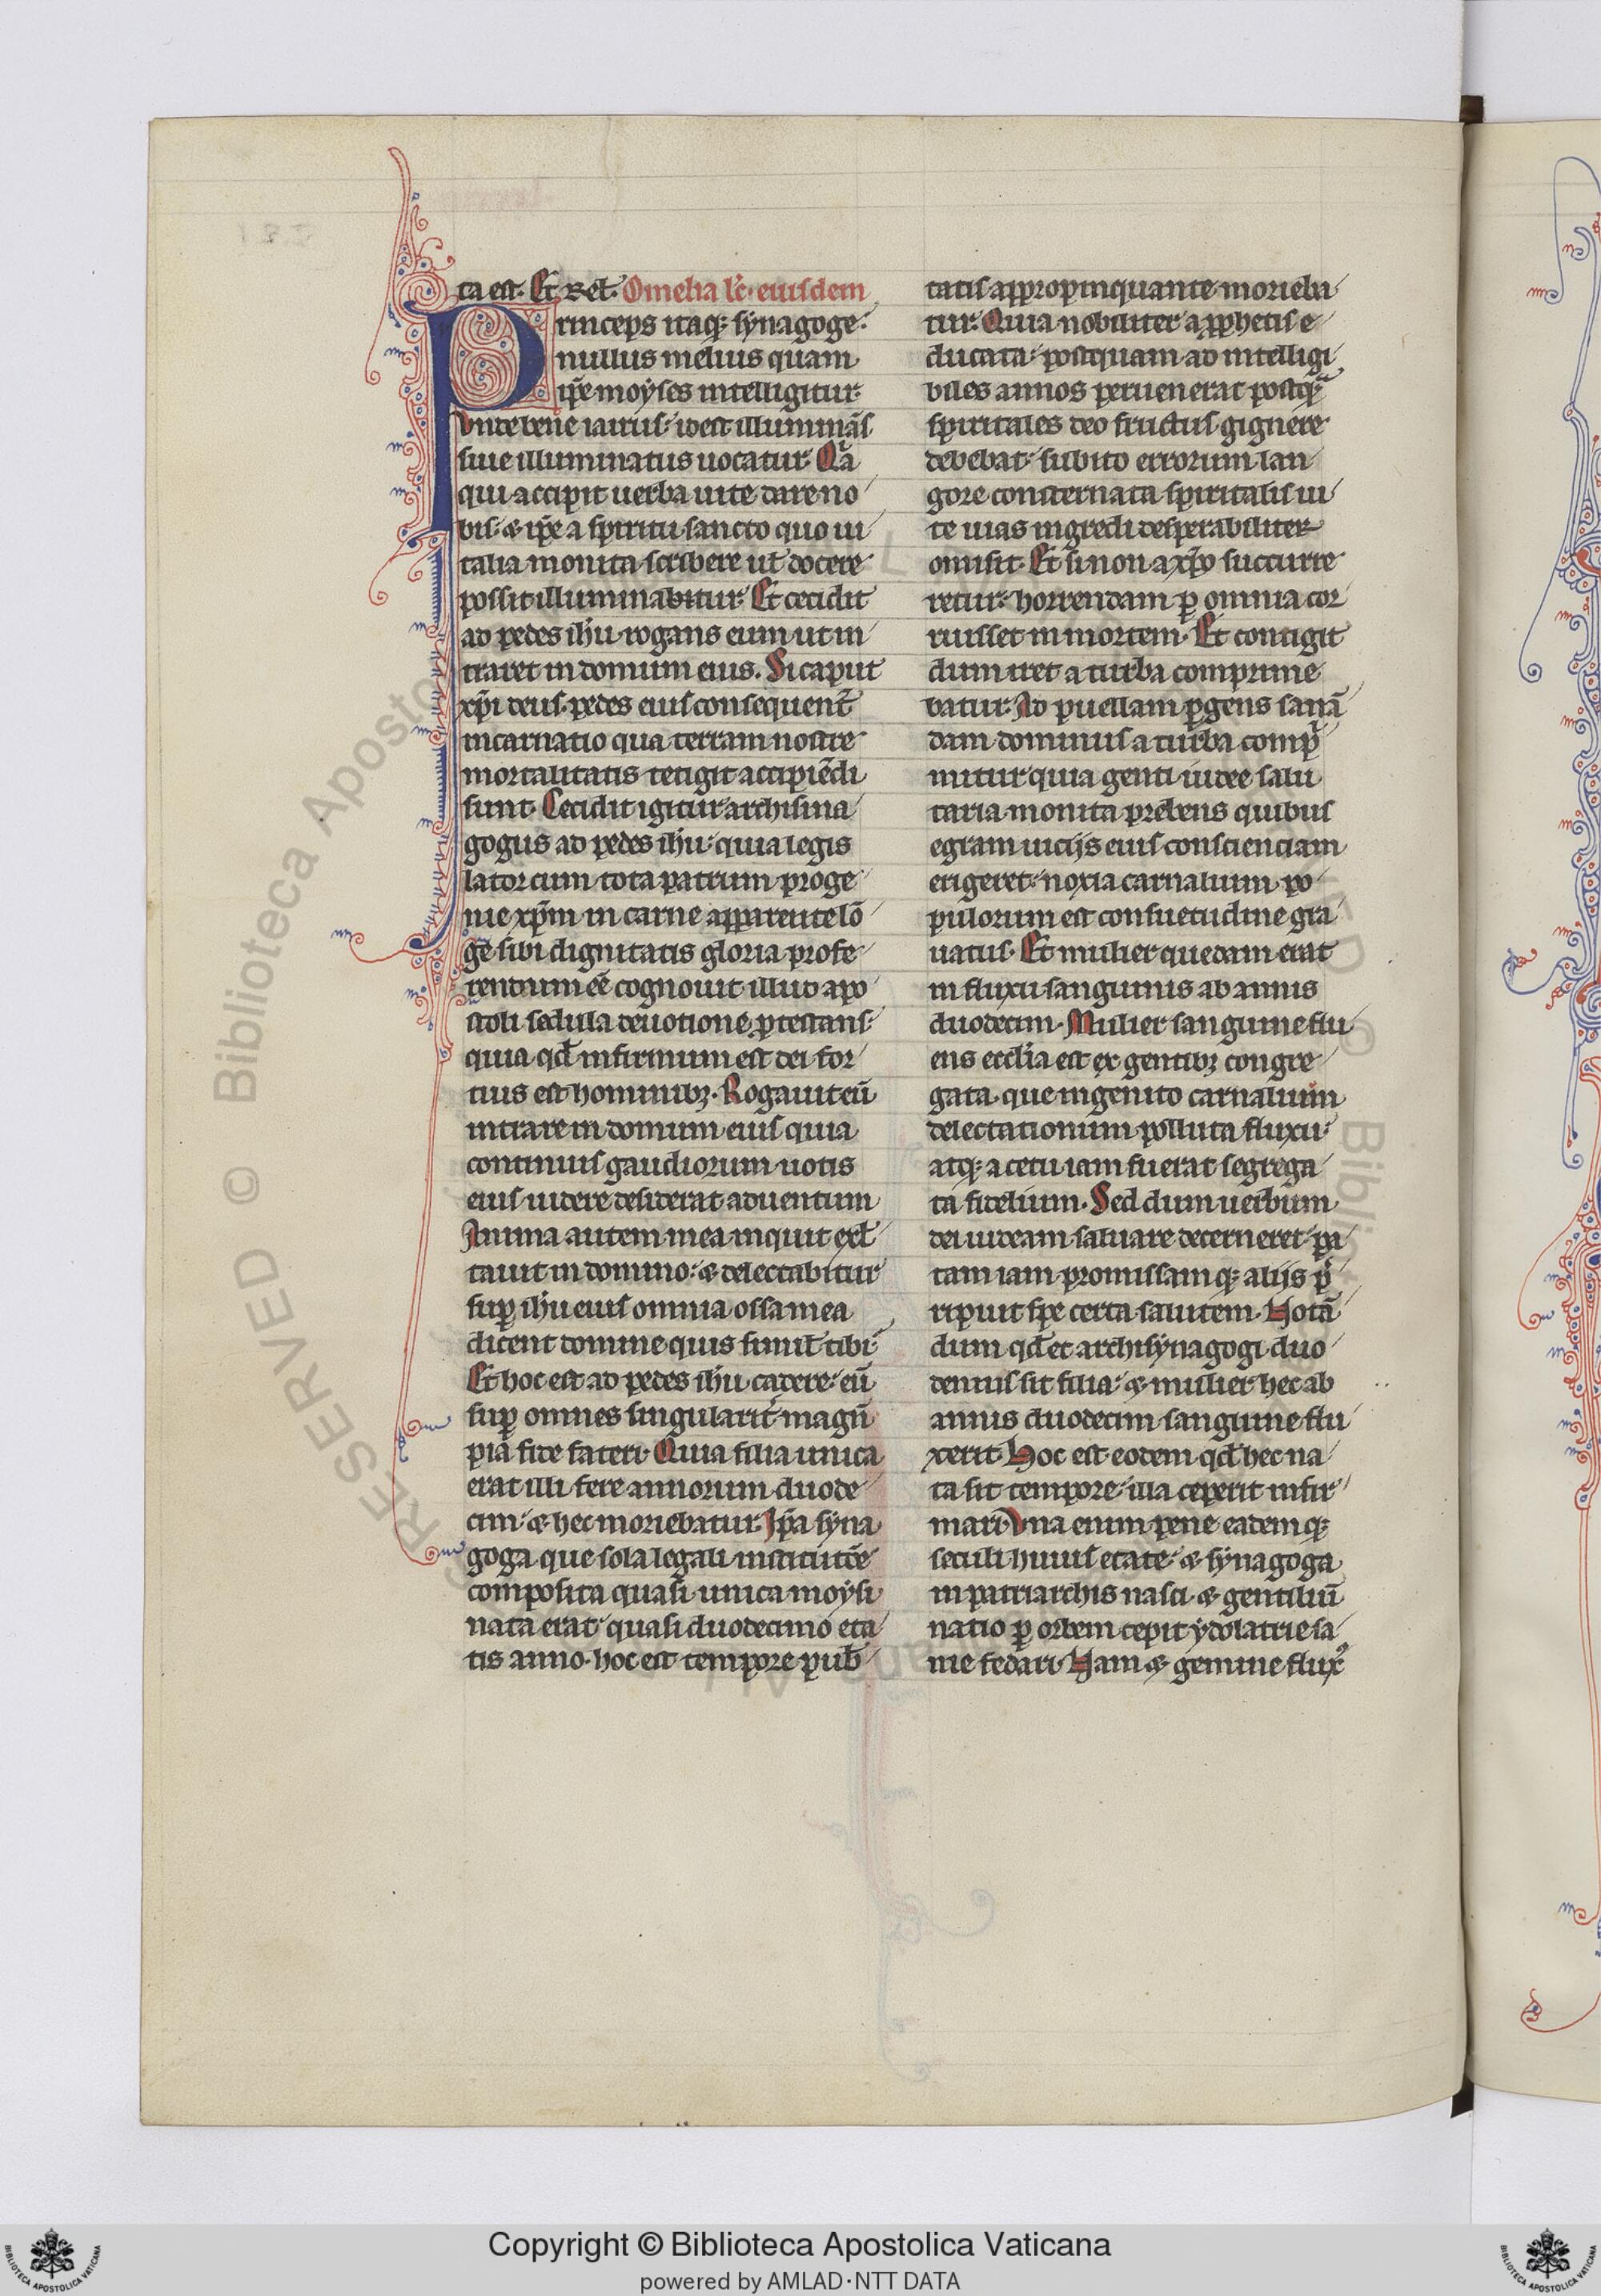 ta est. Et rel. Omelia lc̄. eiusdem
Princeps itaq; synagoge.
nullus melius quam
ip̄e moyses intelligitur.
Unde bene iairus. id est illuminās
siue illuminatus uocatur. Qa
qui accipit uerba uite dare no
bis. & ip̄e a spiritu sancto quo ui
talia monita scribere ut̄ docere
possit illuminabitur. Et cecidit
ad pedes ihu rogans eum ut in
traret in domum eius. Si caput
xp̄i deus. pedes eius consequent̄
incarnatio qua terram nostre
mortalitatis tetigit accipiēdi
sunt. Cecidit igitur archisina
gogus ad pedes ihu. quia legis
lator cum tota patrum proge
nie xp̄m in carne apparente lō
ge sibi dignitatis gloria prefe
rendum eē cognouit illud apo
stoli sedula deuotione ptestans.
quia qd̄ infirmum est dei for
tius est hominibꝫ. Rogauit eū
intrare in domum eius quia
continuis gaudiorum uotis
eius uidere desiderat aduentum
Anima autem mea inquit exl̄
tauit in domino. & delectabitur
sup ihu eius omnia ossa mea
dicent domine quis simil̄ tibi.
Et hoc est ad pedes ihu cadere. eū
sup omnes singularit̄ magnū
pia fide fateri. Quia filia unica
erat illi fere annorum duode
cim. & hec moriebatur. Ip̄a syna
goga que sola legali institutōe
composita quasi unica moysi
nata erat. quasi duodecimo eta
tis anno. hoc est tempore pub̄
tatis appropinquante morieba
tur. Quia nobiliter a p̄phetis e
ducata. postquam ad intelligi
biles annos peruenerat postq̄
spiritales deo fructus gignere
debebat. subito errorum lan
gore consternata spiritalis ui
te uias ingredi desperabiliter
omisit. Et si non a xp̄o succurre
retur. horrendam p omnia cor
ruisset in mortem. Et contigit
dum iret a turba comprime
batur. Ad puellam pgens sanā
dam dominus a turba comp
mitur quia genti iudee salu
taria monita prebens quibus
egram uicijs eius conscienciam
erigeret. noxia carnalium po
pulorum est consuetudine gra
uatus. Et mulier quedam erat
in fluxu sanguinis ab annis
duodecim. Mulier sanguine flu
ens eccl̄ia est ex gentibꝫ congre
gata. que ingenito carnalium
delectationum polluta fluxu.
atq; a cetu iam fuerat segrega
ta fidelium. Sed dum uerbum
dei iudeam saluare decerneret. pa
tam iam promissamq; alijs p
ripuit spe certa salutem. Notā
dum qd̄ et archisynagogi duo
dennis sit filia. & mulier hec ab
annis duodecim sanguine flu
xerit. Hoc est eodem qd̄ hec na
ta sit tempore. illa ceperit infir
mari. Una enim pene eademq;
seculi huius etate. & synagoga
in patriarchis nasci. & gentiliū
natio p orbem cepit ydolatrie sa
nie fedari. Nam & gemine flux̄
© Biblioteca Aposto
RESERVED
Copyright © Biblioteca Apostolica Vaticana
powered by AMLAD·NTT DATA